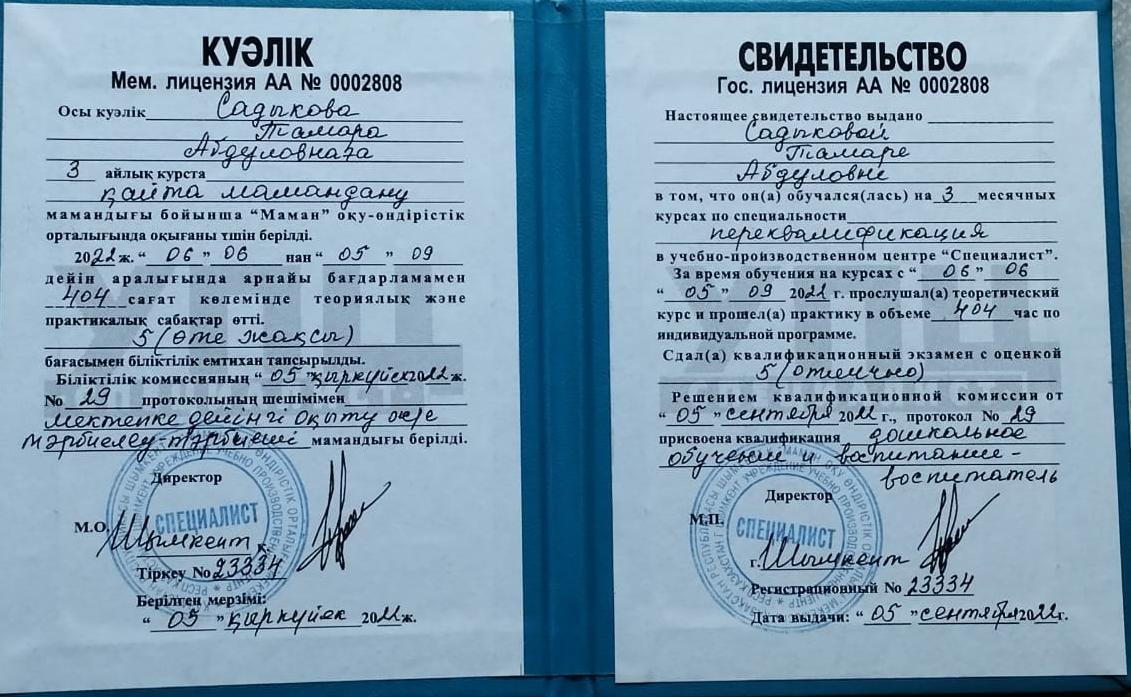 КУӘЛІК
Мем. лицензия АА № 0002808
Осы куәлік Садыкова
Тамара
Абдуловнаға
3 айлық курста
қайта мамандану
мамандығы бойынша “Маман” оқу-өндірістік
орталығында оқығаны үшін берілді.
2022 ж. “ 06 ” 06 нан “ 05 ” 09
дейін аралығында арнайы бағдарламамен
404 сағат көлемінде теориялық және
практикалық сабақтар өтті.
5 (өте жақсы)
бағасымен біліктілік емтихан тапсырылды.
Біліктілік комиссияның “ 05 ” қыркүйек 2022 ж.
№ 29 протоколының шешімімен
мектепке дейінгі оқыту және
тәрбиелеу-тәрбиеші мамандығы берілді.
Директор
М.О.
СПЕЦИАЛИСТ
Шымкент қ.
Тіркеу № 23334
Берілген мерзімі:
“ 05 ” қыркүйек 2022 ж.
СВИДЕТЕЛЬСТВО
Гос. лицензия АА № 0002808
Настоящее свидетельство выдано
Садыковой
Тамаре
Абдуловне
в том, что он(а) обучался(лась) на 3 месячных
курсах по специальности
переквалификация
в учебно-производственном центре “Специалист”.
За время обучения на курсах с “ 06 ” 06
“ 05 ” 09 2022 г. прослушал(а) теоретический
курс и прошел(а) практику в объеме 404 час по
индивидуальной программе.
Сдал(а) квалификационный экзамен с оценкой
5 (отлично)
Решением квалификационной комиссии от
“ 05 ” сентября 2022 г., протокол № 29
присвоена квалификация дошкольное
обучение и воспитание-
воспитатель
Директор
М.П.
СПЕЦИАЛИСТ
г. Шымкент
Регистрационный № 23334
Дата выдачи: “ 05 ” сентября 2022 г.